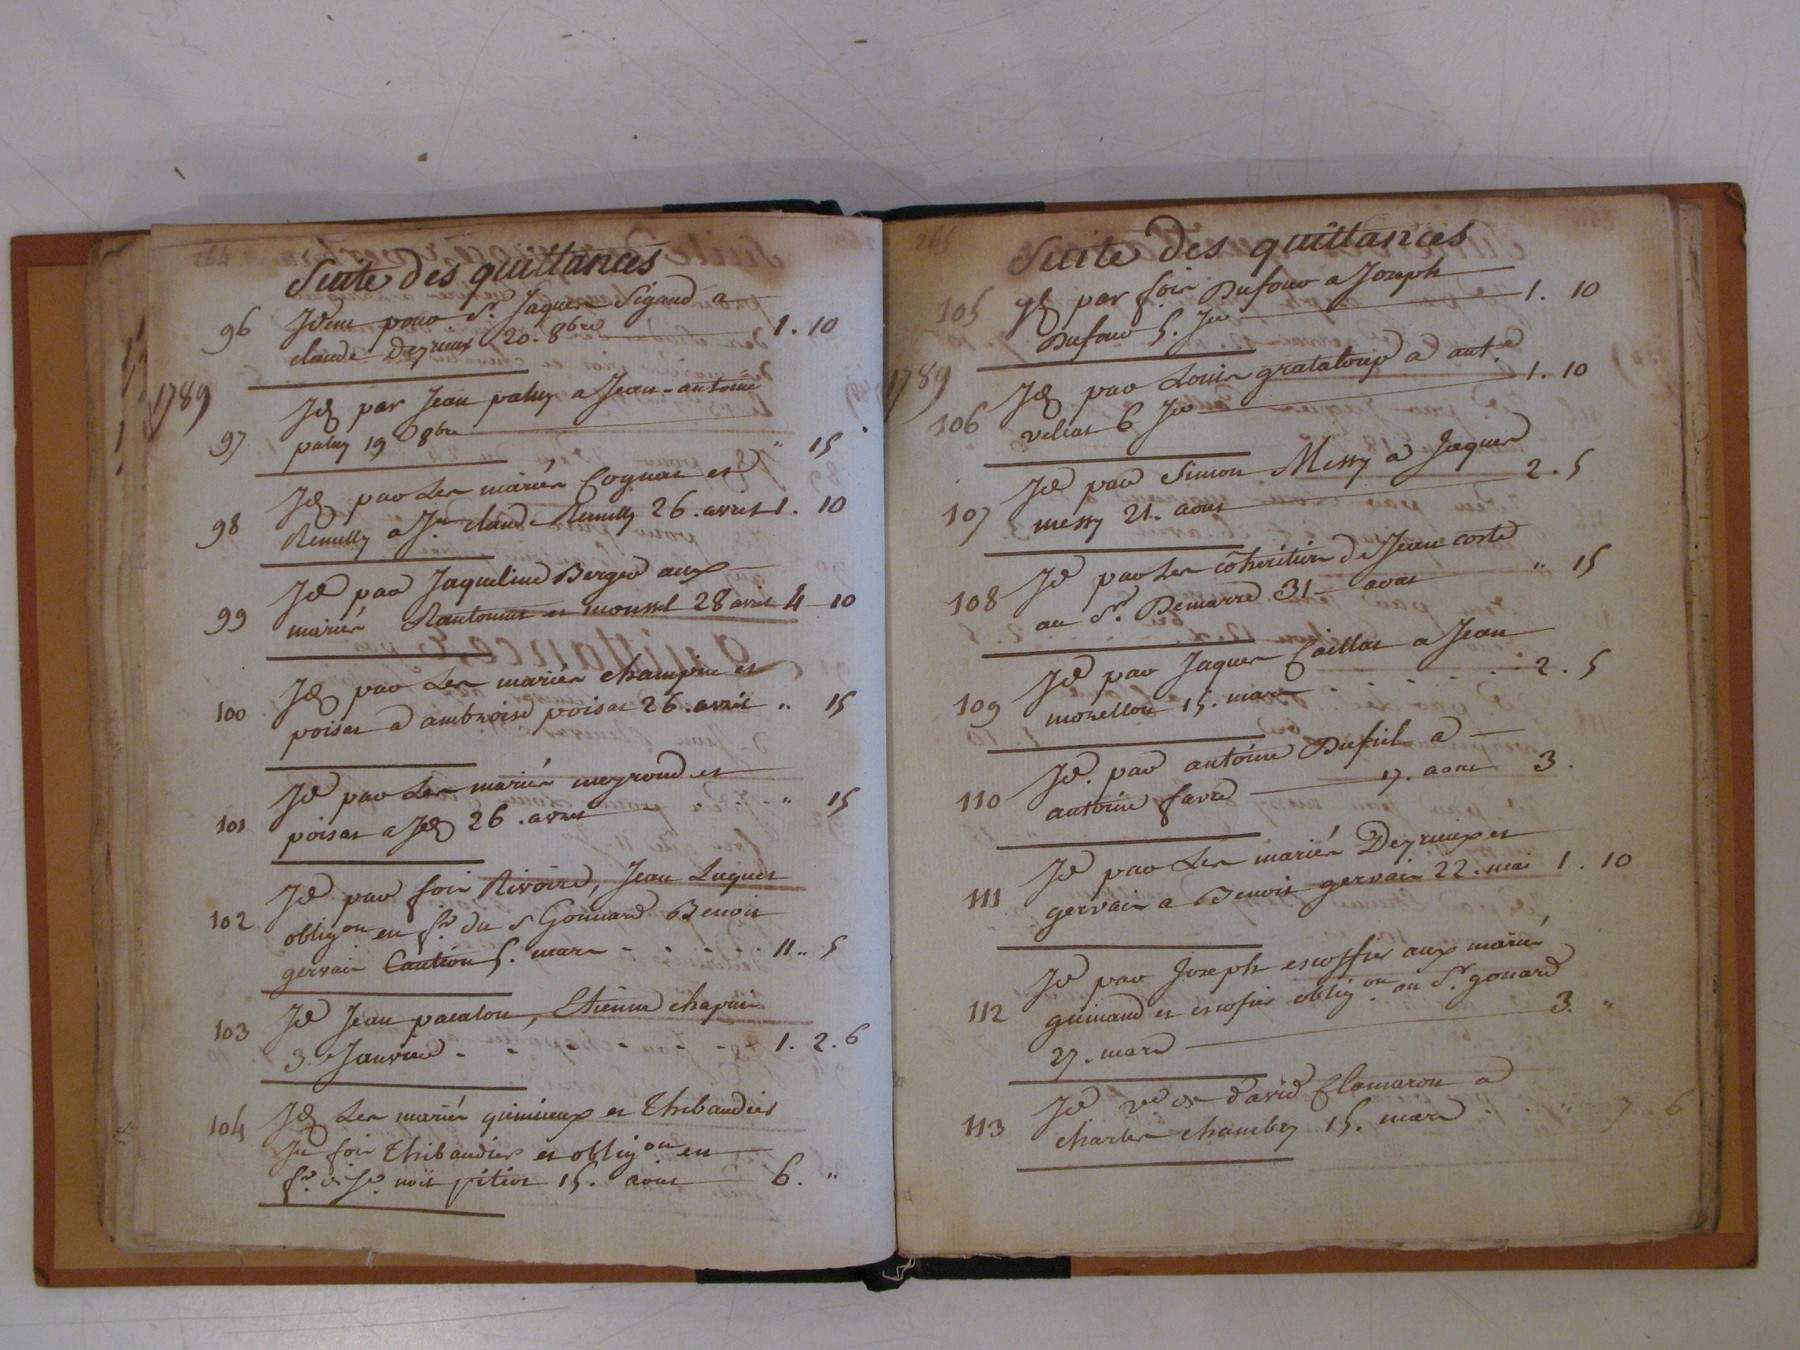 264
Suite des quittances
96 Idem pour Sr. Jaques Sigaud a
claude Deyrieux 20. 8bre 1. 10
1789
97 Id par Jean paluy a Jean-antoine
paluy 19 8bre " 15
98 Id par Les mariés Cognat et
Remilly a Jn claude Remilly 26. avril 1. 10
99 Id par Jaqueline Berger aux
mariés Rantonnet et moussel 28 avril 4 10
100 Id par Les mariés champin et
poisat a ambroise poisat 26. avril " 15
101 Id par Les mariés meyrond et
poisat a Id 26. avril " 15
102 Id par fois Rivoire, Jean Luquet
obligon en fr du S Gonnard Benoit
gervais Caution 5. mars 11 " 5
103 Id Jean pacalon, Etienne chapuis
3 Janvier 1. 2. 6
104 Id Les mariés guinieux et Thibaudier
Jn fois Thibaudier et obligon en
fr. de Jn. noït pitiot 15. aout 6. "
265
Suite des quittances
105 Id par fois Dufour a Joseph
Dufour 5. Jer 1. 10
1789
106 Id par Louis grataloup a ant.e
velias 6 Jer 1. 10
107 Id par Simon Messy a Jaques
messy 21. aout 2. 5
108 Id par Les cohéritiers de Jean coste
au Sr. Demarre 31 aout " 15
109 Id par Jaques Caillat a Jean
morellon 15. mars 2. 5
110 Id. par antoine Dufiel a
antoine favre 17. aout 3.
111 Id par Les mariés Deyrieux et
gervais a Benoit gervais 22. mai 1. 10
112 Id par Joseph escoffier aux mariés
guinand et escofier obligon. au Sr. gonard
27. mars 3. "
113 Id ve de david flamaron a
charles chambry 15. mars " 7. 6